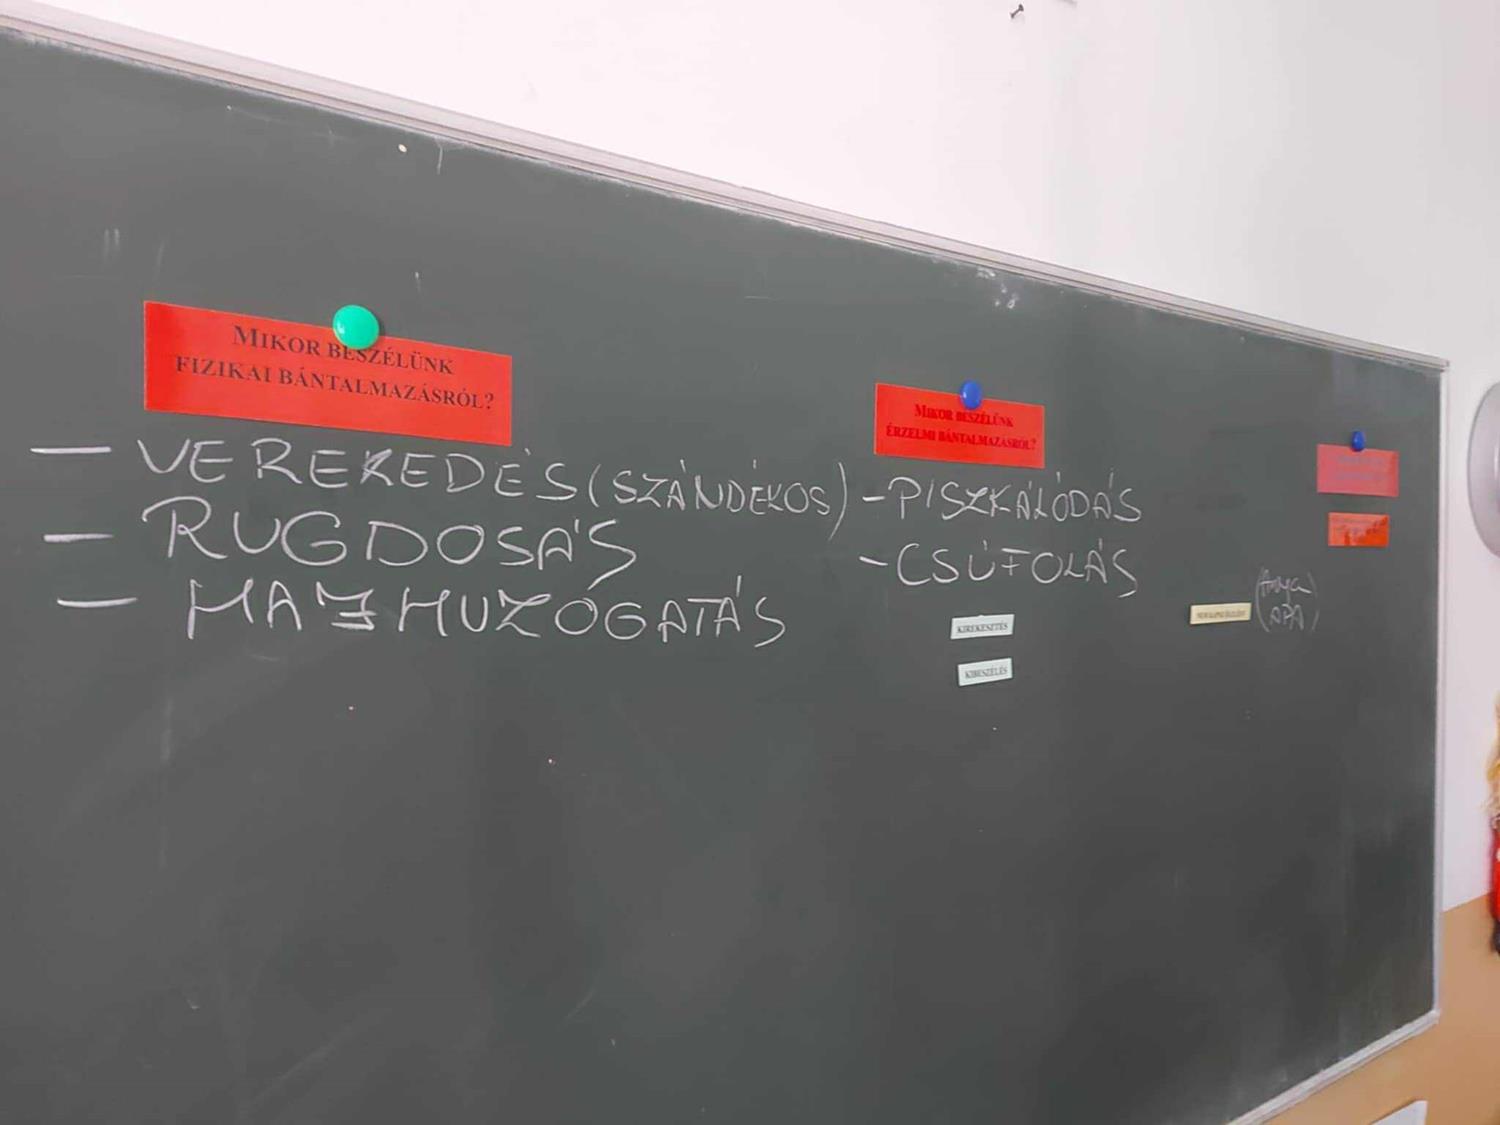 MIKOR BESZÉLÜNK
FIZIKAI BÁNTALMAZÁSRÓL?
— VEREKEDÉS (SZÁNDÉKOS)
— RUGDOSÁS
— HAJHUZÓGATÁS
MIKOR BESZÉLÜNK
ÉRZELMI BÁNTALMAZÁSRÓL?
- PISZKÁLÓDÁS
- CSÚFOLÁS
KIREKESZTÉS
KIBESZÉLÉS
(Anya
APA)